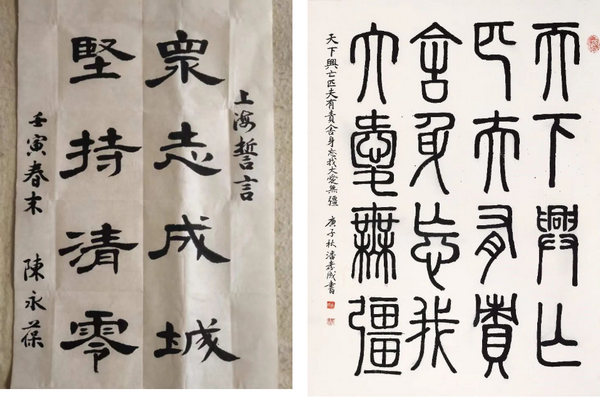 上海誓言
眾志成城
堅持清零
壬寅春末 陳永葆
天下興亡
匹夫有責
舍身忘我
大愛無疆
天下興亡匹夫有責舍身忘我大愛無疆 庚子秋潘孝成書